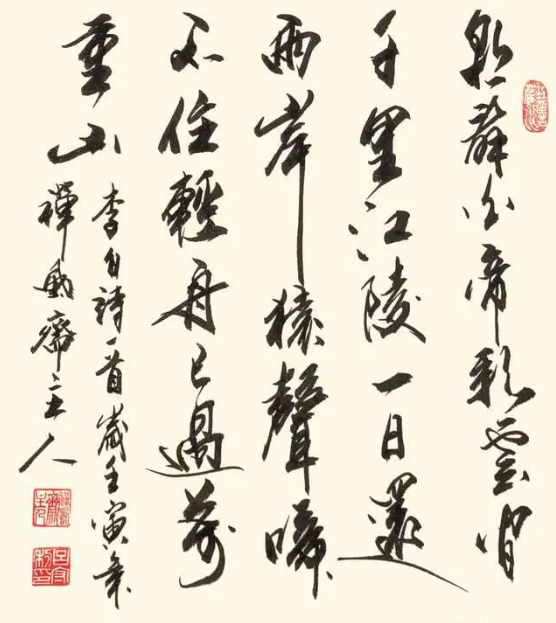 朝辭白帝彩雲間
千里江陵一日還
兩岸猿聲啼
不住輕舟已過萬
重山
李白詩一首歲壬寅年
禪齋主人